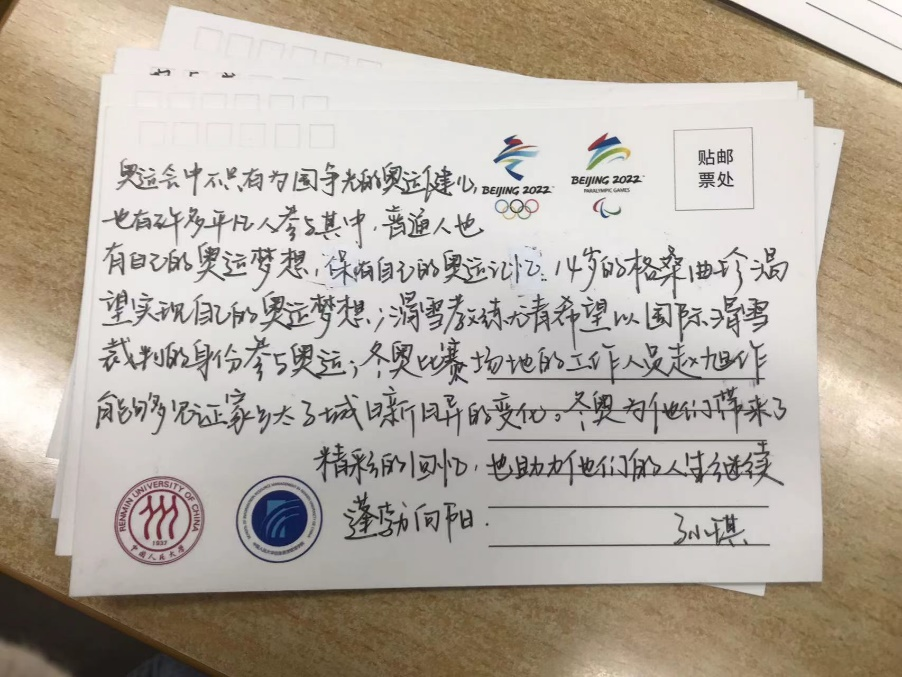 BEIJING 2022
BEIJING 2022
PARALYMPIC GAMES
贴邮
票处
奥运会中不只有为国争光的奥运健儿,
也有许多平凡人参与其中,普通人也
有自己的奥运梦想,保有自己的奥运记忆。14岁的格桑曲珍渴
望实现自己的奥运梦想;滑雪教练 希望以国际滑雪
裁判的身份参与奥运;冬奥比赛场地的工作人员赵旭作
能够见证家乡太子城日新月异的变化。冬奥为他们带来了
精彩的回忆,也助力他们的人生继续
蓬勃向阳。
孙琪
RENMIN UNIVERSITY OF CHINA
1937
中国人民大学